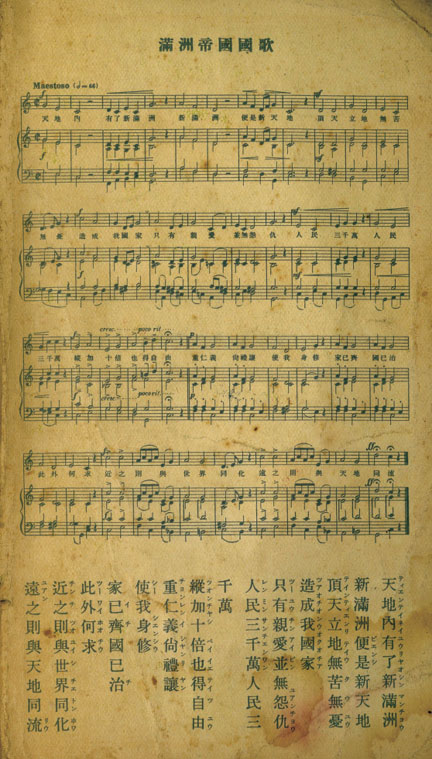 滿洲帝國國歌
Maestoso (♩=66)
天地內 有了新滿洲 新滿洲 便是新天地 頂天立地 無苦
無憂 造成 我國家 只有 親愛 並無怨仇 人民 三千萬 人民
cresc. poco rit.
三千萬 縱加 十倍 也得自由 重仁義 尙禮讓 使我 身修 家已齊 國已治
cresc. poco rit.
此外 何求 近之 則與 世界 同化 遠之 則與 天地 同流
天地內有了新滿洲
新滿洲便是新天地
頂天立地無苦無憂
造成我國家
只有親愛並無怨仇
人民三千萬人民三
千萬
縱加十倍也得自由
重仁義尙禮讓
使我身修
家已齊國已治
此外何求
近之則與世界同化
遠之則與天地同流